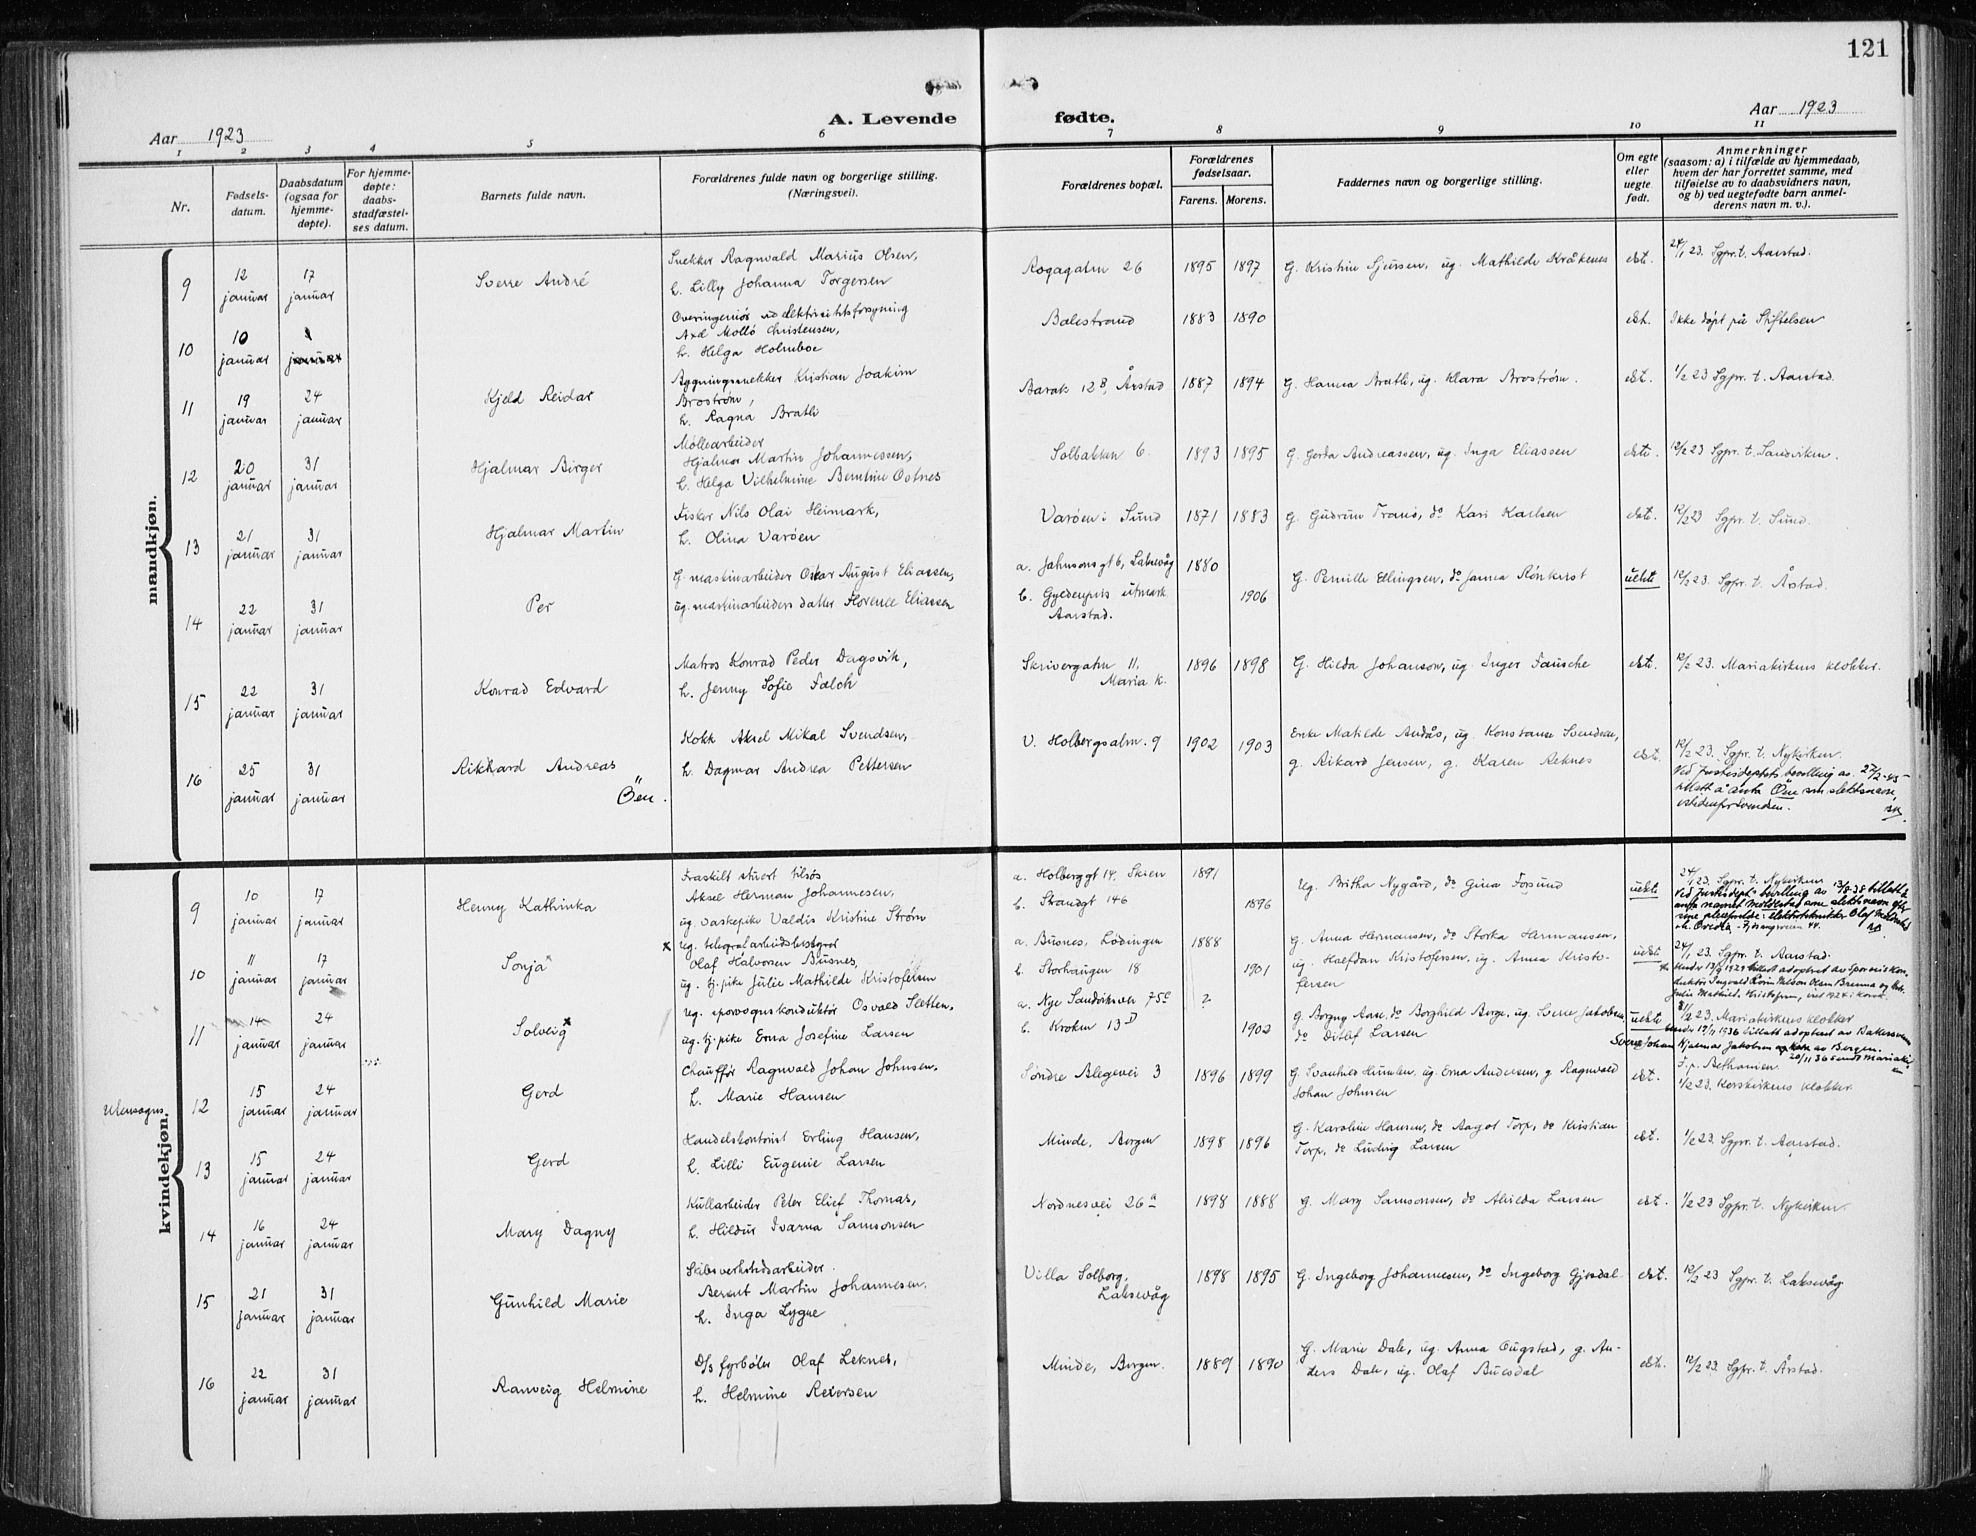 121
A. Levende fødte.
Aar 1923
Aar 1923
1 2 3 4 5 6 7 8 9 10 11
Nr.
Fødsels-
datum.
Daabsdatum
(ogsaa for
hjemme-
døpte).
For hjemme-
døpte:
daabs-
stadfæstel-
ses datum.
Barnets fulde navn.
Forældrenes fulde navn og borgerlige stilling.
(Næringsvei).
Forældrenes bopæl.
Forældrenes
fødselsaar.
Farens. Morens.
Faddernes navn og borgerlige stilling.
Om egte
eller
uegte
født.
Anmerkninger
(saasom: a) i tilfælde av hjemmedaab,
hvem der har forrettet samme, med
tilføielse av to daabsvidners navn,
og b) ved uegtefødte barn anmel-
derens navn m. v.).
mandkjøn.
9 12 januar 17 januar Sverre André
Snekker Ragnvald Marius Olsen,
h. Lilly Johanna Torgersen
Rogagaten 26 1895 1897 G. Kristine Sjursen, ug. Mathilde Kråkenes ekt. 24/1 23. Sgpr. t. Aarstad.
10 10 januar januar
Overingeniør ved elektricitetsforsyning
Axel Mollö Christensen,
h. Helga Holmboe
Balestrand 1883 1890 ekt. Ikke døpt på Stiftelsen
11 19 januar 24 januar Kjeld Reidar
Bygningssnekker Kristian Joakim
Broström,
h. Ragna Bratli
Barak 12B, Årstad 1887 1894 G. Hanna Bratli, ug. Klara Broström. ekt. 1/2 23 Sgpr. t. Aarstad.
12 20 januar 31 januar Hjalmar Birger
Møllearbeider
Hjalmar Martin Johannessen,
h. Helga Vilhelmine Berntine Ostnes
Solbakken 6. 1893 1895 G. Gerda Andreassen, ug. Inga Eliassen ekte. 12/2 23 Sgpr. t. Sandviken.
13 21 januar 31 januar Hjalmar Martin
Fisker Nils Olai Heimark,
h. Olina Varöen
Varöen i Sund 1871 1883 G. Gudrun Tranö, do Kari Karlsen ekte. 12/2 23 Sgpr. t. Sund.
14 22 januar 31 januar Per
G. maskinarbeider Oskar August Eliassen,
ug. maskinarbeiders datter Florence Eliassen
a. Jahnsons gt 6, Laksevåg 1880
b. Gyldenpris utmark 1906
Aarstad.
G. Pernille Ellingsen, do Janna Rönkvist uekte 12/2 23. Sgpr. t. Årstad.
15 22 januar 31 januar Konrad Edvard
Matros Konrad Peder Dagsvik,
h. Jenny Sofie Falch
Skrivergaten 11. 1896 1898 G. Hilda Johanson, ug. Inger Fausche ekt. 12/2 23. Mariakirkens klokker.
Maria k.
16 25 januar 31 januar Rikhard Andreas
Öen.
Kokk Aksel Mikal Svendsen,
h. Dagmar Andrea Pettersen
V. Holbergsalm. 9 1902 1903 Enke Matilde Andås, ug. Konstanse Svendsen,
g. Rikard Jensen, g. Karen Reknes ekt. 12/2 23. Sgpr. t. Nykirken.
Ved Justisdeptets bevilling av 27/2-45
tillatt å anta Öen som slektsnavn
istedenfor Svendsen.
kvindekjøn.
9 10 januar 17 januar Henny Kathinka
Fraskilt stuert tilsøs
Aksel Herman Johannesen,
ug. vaskepike Valdis Kristine Strøm
a. Holberggt 14, Skien 1891
b. Strandgt 146 1896
Ug. Britha Nygård, do Gina Forsund uekte 24/1 23. Sgpr. t. Nykirken
Ved Justisdept bevilling av 13/8-38 tillatt å
anta navnet Moldestad som slektsnavn efter
sine pleieforeldre: elektrotekniker Olaf Moldestad
10 11 januar 17 januar Sonja
x ug. telegrafarbeidsbestyrer
Olaf Halvorsen Busnes,
ug. tj. pike Julie Mathilde Kristofersen
a. Busnes, Lödingen 1888
b. Storhaugen 18 1901
G. Anna Hermansen, do Storka Hermansen,
ug. Halfdan Kristofersen, ug. Anna Kristo-
fersen uekte 24/1 23. Sgpr. t. Aarstad
11 14 januar 24 januar Solveig x
Ug. sporvognskonduktör Osvald Sletten,
ug. tj. pike Erna Josefine Larsen
a. Nye Sandviksvei 75c ?
b. Kroken 13D 1902
g. Borgny Aase, do Borghild Berge, ug. Sverre Jakobsen,
do Ditlef Larsen uekte 8/2 23. Mariakirkens klokker
Under 19/11 1936 tillatt adoptert av Bakersvend
Sverre Johan Hjalmar Jakobsen og kone av Bergen.
Utensogns.
12 15 januar 24 januar Gerd
Chauffør Ragnvald Johan Johnsen,
h. Marie Hansen
Søndre Blegevei 3 1896 1899 G. Svanhild Humlen, ug. Erna Andersen, g. Ragnvald
Johan Johnsen ekt. F. p. Bethanien
1/2 23. Korskirkens klokker.
13 15 januar 24 januar Gerd
Handelskontorist Erling Hansen,
h. Lilli Eugenie Larsen
Minde, Bergen 1898 1896 G. Karoline Hansen, do Aagot Torp, do Kristian
Torp, do Ludvig Larsen ekt. 1/2 23. Sgpr. t. Aarstad.
14 16 januar 24 januar Mary Dagny
Kullarbeider Peter Elief Thomas,
h. Hildur Ivarna Samsonsen
Nordnesvei 26a 1898 1888 G. Mary Samsonsen, do Alvilda Larsen ekt. 1/2 23 Sgpr. t. Nykirken.
15 21 januar 31 januar Gunhild Marie
Skibsverkstedsarbeider.
Berent Martin Johannesen,
h. Inga Lygne
Villa Solborg, 1898 1895 G. Ingeborg Johannesen, do Ingeborg Gjesdal ekt. 12/2 23 Sgpr. t. Laksevåg
Laksevåg
16 22 januar 31 januar Ranveig Helmine
D/s fyrböter Olaf Leknes,
h. Helmine Reiersen
Minde, Bergen. 1889 1890 G. Marie Dale, ug. Anna Ougstad, g. An-
ders Dale, ug. Olaf Buesdal ekt. 12/2 23. Sgpr. t. Årstad.